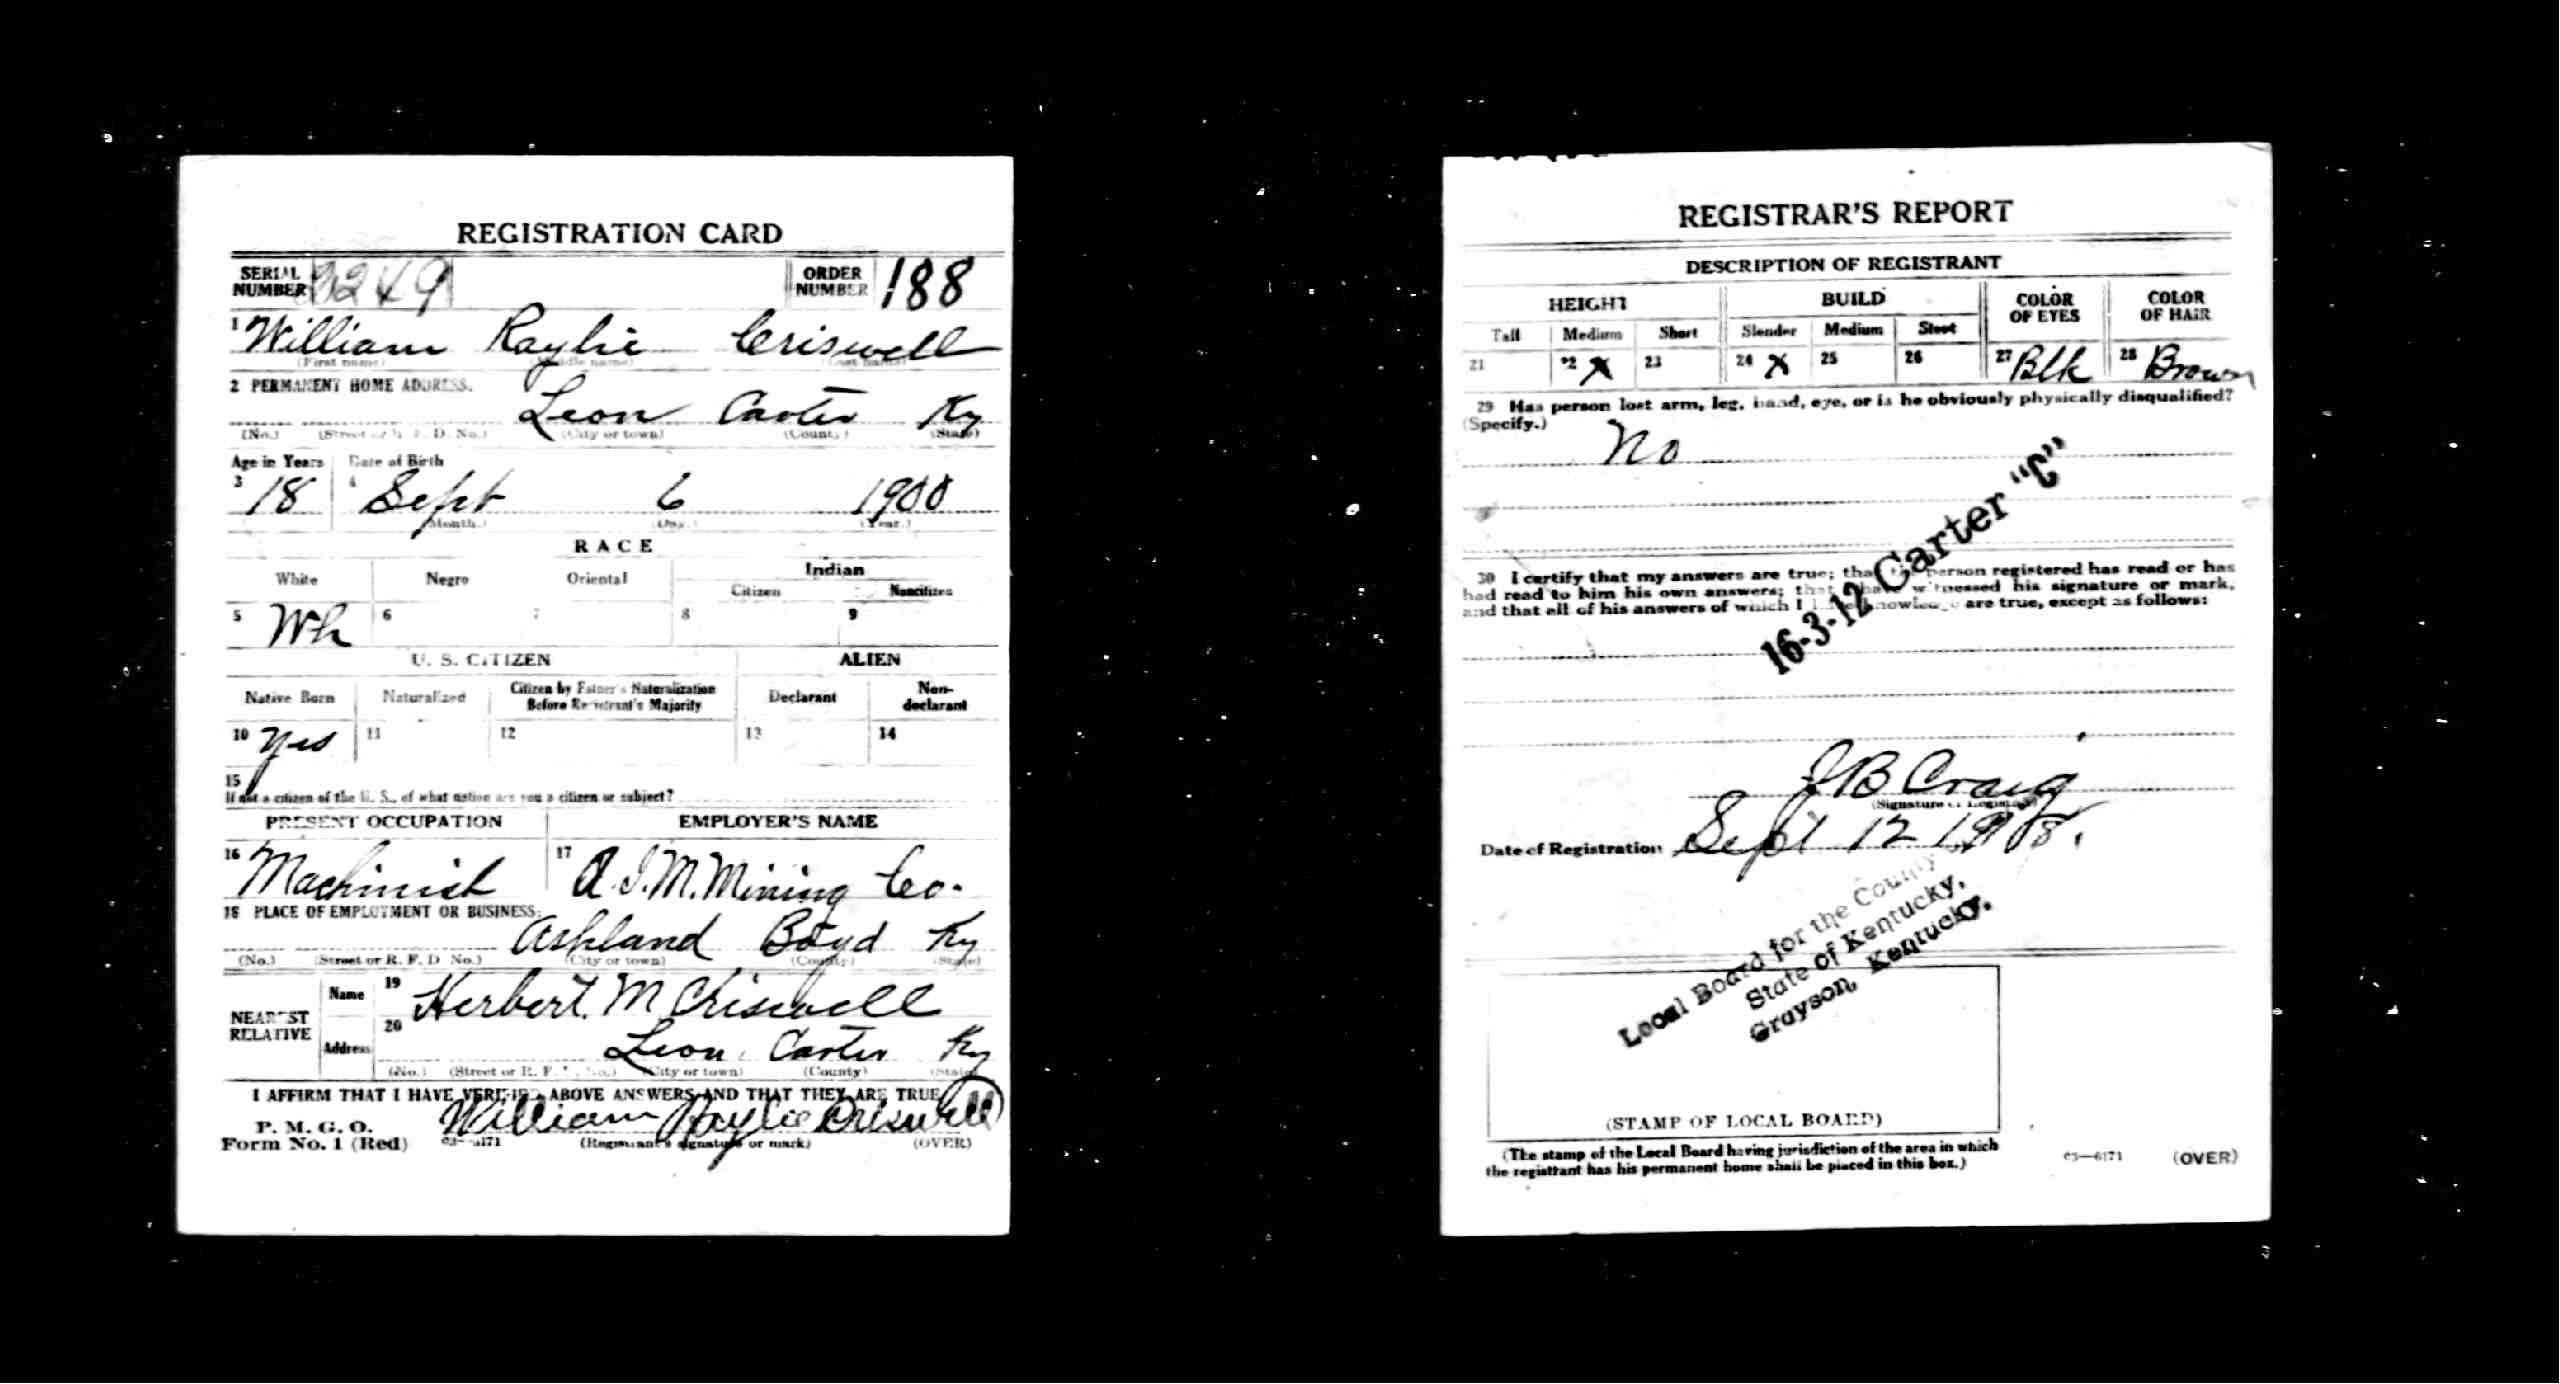 REGISTRATION CARD
SERIAL NUMBER 3249 ORDER NUMBER 188
1 William Raylie Criswell
(First name) (Middle name) (Last name)
2 PERMANENT HOME ADDRESS.
Leon Carter Ky
(No.) (Street or R. F. D. No.) (City or town) (County) (State)
Age in Years Date of Birth
3 18 4 Sept 6 1900
(Month.) (Day.) (Year.)
RACE
White Negro Oriental Indian
Citizen Noncitizen
5 Wh 6 7 8 9
U. S. CITIZEN ALIEN
Native Born Naturalized Citizen by Father's Naturalization Before Registrant's Majority Declarant Non-declarant
10 Yes 11 12 13 14
15
If not a citizen of the U. S., of what nation are you a citizen or subject?
PRESENT OCCUPATION EMPLOYER'S NAME
16 Machinist 17 A. I. M. Mining Co.
18 PLACE OF EMPLOYMENT OR BUSINESS:
Ashland Boyd Ky
(No.) (Street or R. F. D. No.) (City or town) (County) (State)
NEAREST RELATIVE Name 19 Herbert M Criswell
Address 20 Leon Carter Ky
(No.) (Street or R. F. D. No.) (City or town) (County) (State)
I AFFIRM THAT I HAVE VERIFIED ABOVE ANSWERS AND THAT THEY ARE TRUE
P. M. G. O.
Form No. 1 (Red) 03—6171 William Raylie Criswell
(Registrant's signature or mark) (OVER)
REGISTRAR'S REPORT
DESCRIPTION OF REGISTRANT
HEIGHT BUILD COLOR OF EYES COLOR OF HAIR
Tall Medium Short Slender Medium Stout
21 22 X 23 24 X 25 26 27 Blk 28 Brown
29 Has person lost arm, leg, hand, eye, or is he obviously physically disqualified?
(Specify.) No
16-3-12 Carter "C"
30 I certify that my answers are true; that the person registered has read or has
had read to him his own answers; that I have witnessed his signature or mark,
and that all of his answers of which I have knowledge are true, except as follows:
J B Craig
(Signature of Registrar)
Date of Registration Sept 12 1918.
Local Board for the County
State of Kentucky,
Grayson, Kentucky.
(STAMP OF LOCAL BOARD)
(The stamp of the Local Board having jurisdiction of the area in which
the registrant has his permanent home shall be placed in this box.)
03—6171 (OVER)